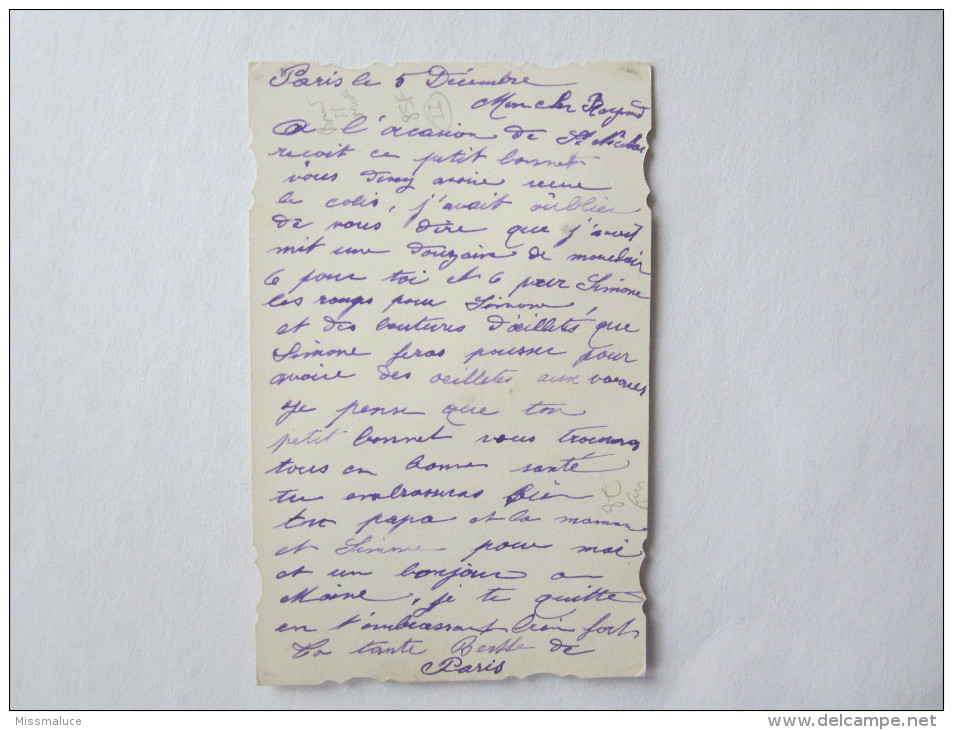 Paris le 5 Décembre
Mon cher Raymond
A l'ocasion de St Nicolas
recoit ce petit bonnet
vous devez avoire recue
le colis, j'avait oûblier
de vous dire que j'avait
mit une douzaine de mouchoir
6 pour toi et 6 pour Simone
les rouges pour Simone,
et des boutures d'œilletés que
Simone feras pousser pour
avoire des oeilletes aux vacances
Je pense que ton
petit bonnet vous trouveras
tous en bonne santé
tu embrasseras bien
ton papa et la maman
et Simone pour moi
et un bonjour a
, je te quitte
en t'embrassant bien fort
Ta tante Berthe de
Paris
Missmaluce
http://www.delcampe.net